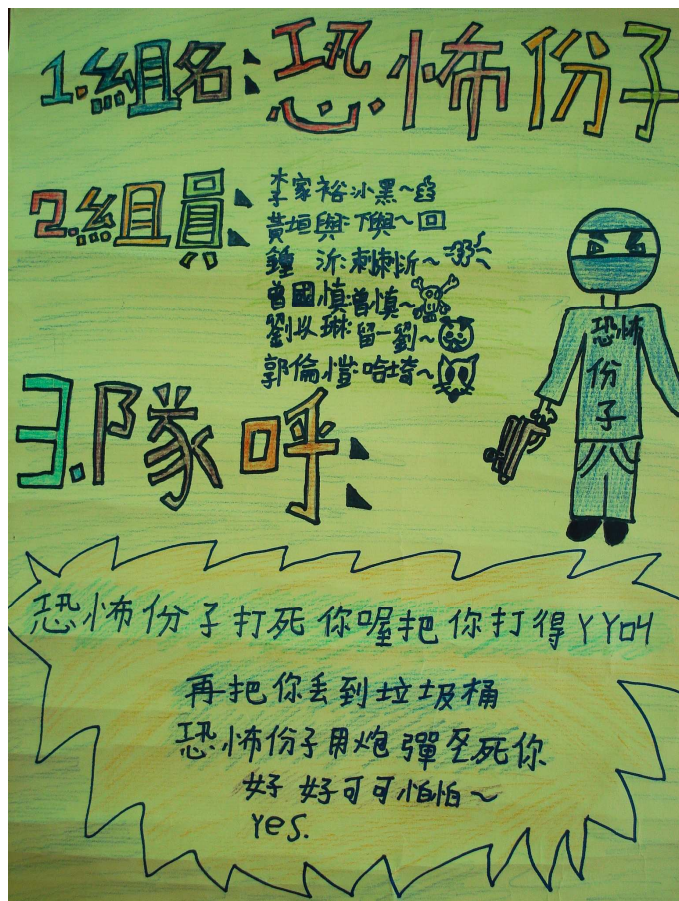 1.組名:恐怖份子
2.組員:
李家裕:小黑~
黃垣與:下與~
鍾 沂:刺刺沂~
曾國慎:曾慎~
劉以琳:留一劉~
郭倫愷:哈塔~
恐怖
份
子
3.隊呼:
恐怖份子打死你喔把你打得ㄚㄚ叫
再把你丟到垃圾桶
恐怖份子用炮彈丟死你
好好可可怕怕~
Yes.